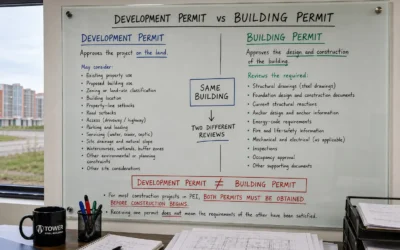 DEVELOPMENT PERMIT vs BUILDING PERMIT
DEVELOPMENT PERMIT
Approves the project on the land.
May consider:
• Existing property use
• Proposed building use
• Zoning or land-use classification
• Building location
• Property-line setbacks
• Road setbacks
• Access (driveway / highway)
• Parking and loading
• Servicing (water, septic)
• Site drainage and natural slope
• Watercourses, wetlands, buffer zones
• Other environmental or planning
constraints
• Other site considerations
SAME
BUILDING
TWO DIFFERENT
REVIEWS
BUILDING PERMIT
Approves the design and construction
of the building.
Reviews the required:
• Structural drawings (steel drawings)
• Foundation design and construction documents
• Current structural reactions
• Anchor design and anchor information
• Energy-code requirements
• Fire and life-safety information
• Mechanical and electrical (as applicable)
• Inspections
• Occupancy approval
• Other supporting documents
DEVELOPMENT PERMIT ≠ BUILDING PERMIT
• For most construction projects in PEI, BOTH PERMITS MUST BE OBTAINED
BEFORE CONSTRUCTION BEGINS.
• Receiving one permit does not mean the requirements of the other have been satisfied.
TOWER